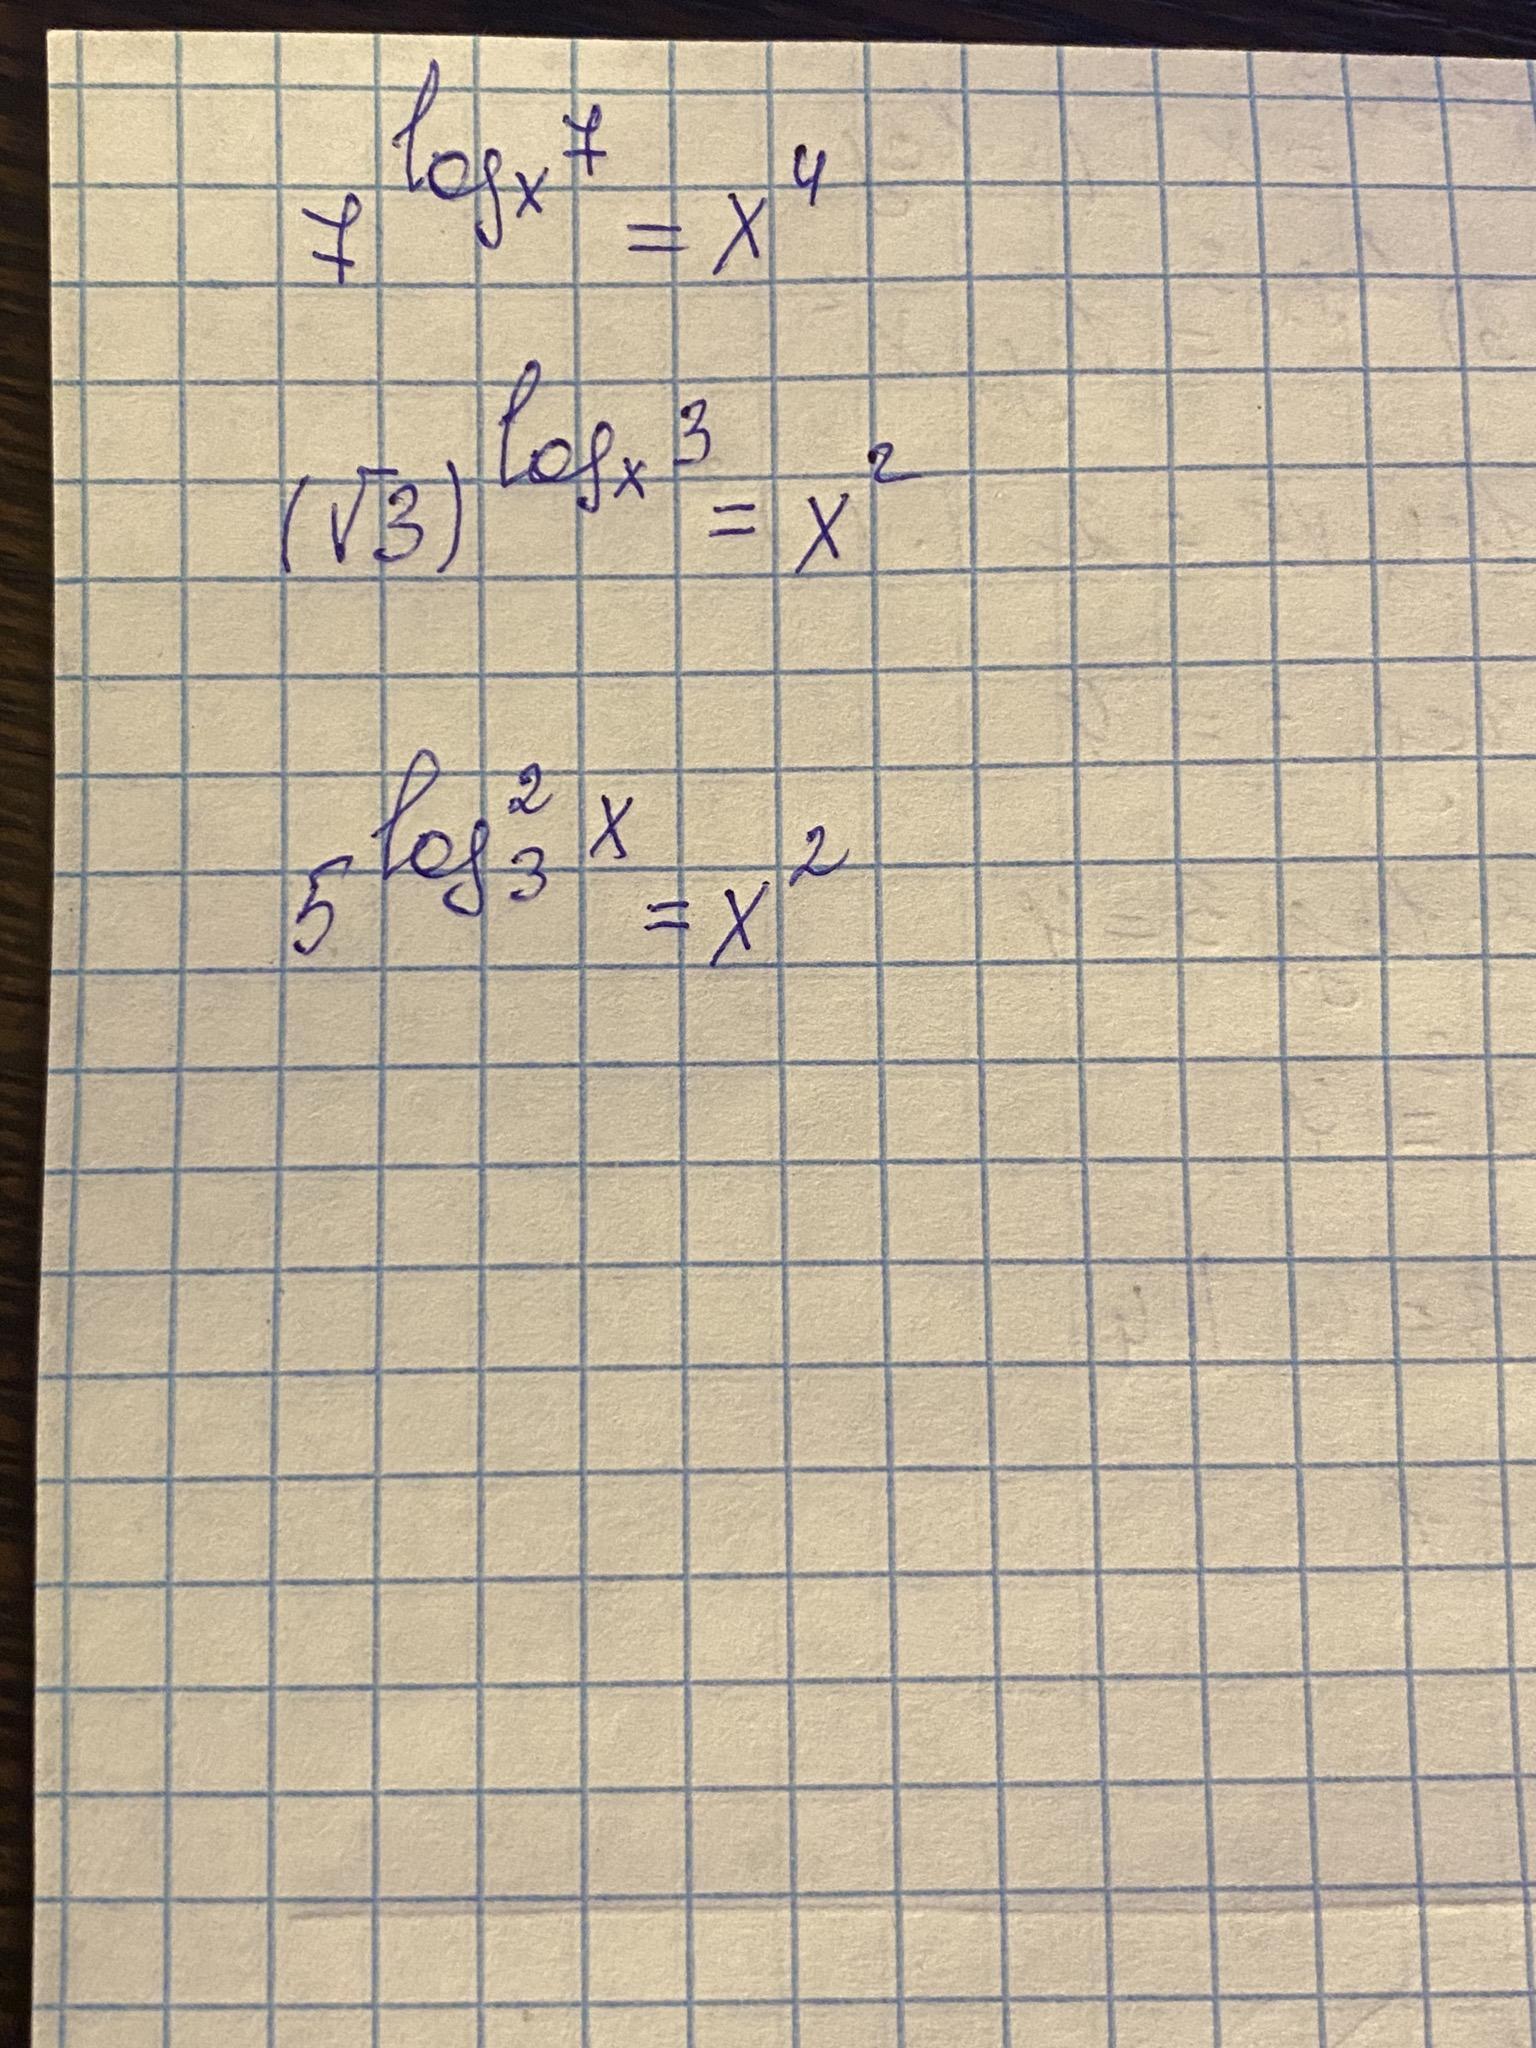 7^{log_x 7} = x^4
(√3)^{log_x 3} = x^2
5^{log_3^2 x} = x^2